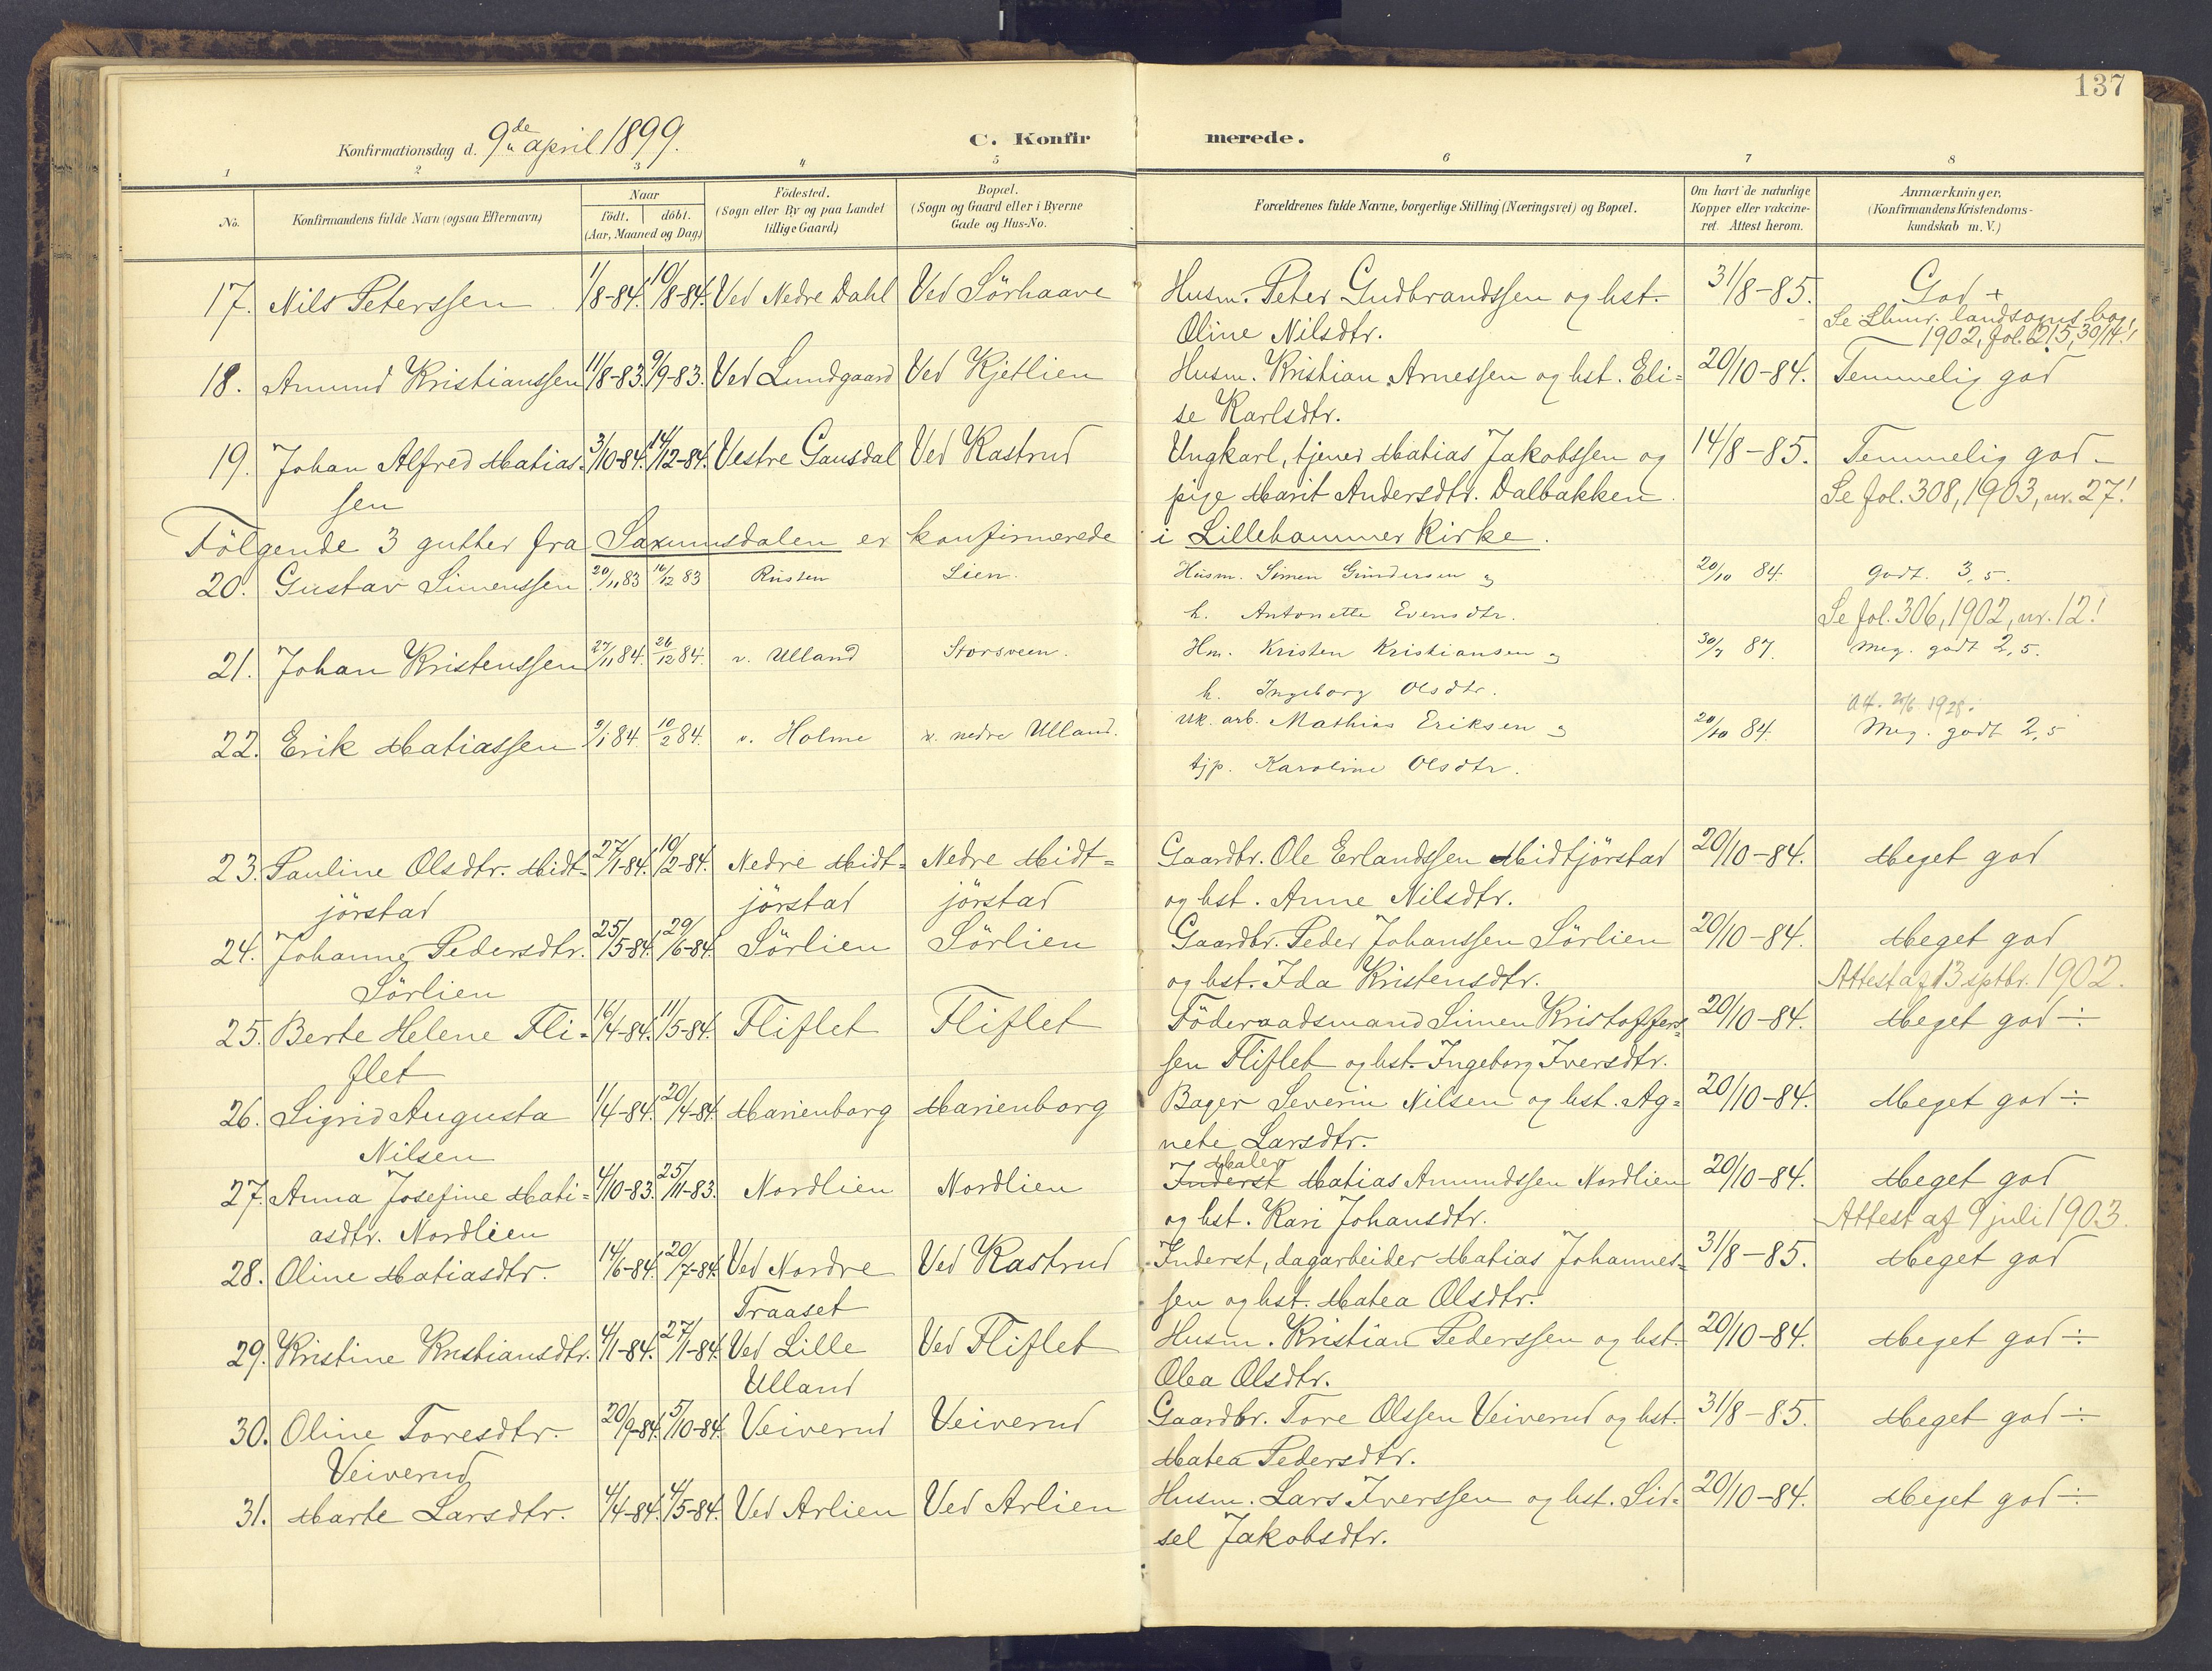 137
Konfirmationsdag d. 9de april 1899.
C. Konfirmerede.
1 2 3 4 5 6 7 8
No. Konfirmandens fulde Navn (ogsaa Efternavn) Naar födt. döbt. (Aar, Maaned og Dag.) Födested. (Sogn eller By og paa Landet tillige Gaard) Bopæl. (Sogn og Gaard eller i Byerne Gade og Hus-No. Forældrenes fulde Navne, borgerlige Stilling (Næringsvei) og Bopæl. Om havt de naturlige Kopper eller vakcineret. Attest herom. Anmærkninger, (Konfirmandens Kristendomskundskab m. V.)
17. Nils Peterssen 1/8-84. 10/8-84. Ved Nedre Dahl Ved Sörhaave Husm. Peter Gudbrandssen og hst. 31/8-85. God +
Oline Nilsdtr. Se Lhmr. landsogns bog,
1902, fol. 215, 30/14!
18. Amund Kristianssen 11/8-83. 9/9-83. Ved Lundgaard Ved Kjetlien Husm. Kristian Arnessen og hst. Eli= 20/10-84. Temmelig god
se Karlsdtr.
19. Johan Alfred Matias= 3/10-84. 14/12-84. Vestre Gausdal Ved Kastrud Ungkarl, tjener Matias Jakobssen og 14/8-85. Temmelig god -
sen pige Marit Andersdtr. Dalbakken. Se fol. 308, 1903, nr. 27!
Fölgende 3 gutter fra Saxumsdalen er konfirmerede i Lillehammer Kirke.
20. Gustav Simenssen 20/11 83 16/12 83 Rusten Lien. Husm. Simen Gundersen og 20/10 84. godt. 3,5.
h. Antonette Evensdtr. Se fol. 306, 1902, nr. 12!
21. Johan Kristenssen 27/11 84. 26/12 84. v. Ulland Storsveen. Hm. Kristen Kristiansen og 30/7 87. meg. godt 2,5.
h. Ingeborg Olsdtr.
22. Erik Matiassen 9/1 84 10/2 84. v. Holme v. nedre Ulland. Uk. arb. Mathias Eriksen og 20/10 84. Meg. godt 2,5
tjp. Karoline Olsdtr.
23. Pauline Olsdtr. Midt= 27/1-84. 10/2-84. Nedre Midt= Nedre Midt= Gaardbr. Ole Erlandssen Midtjörstad 20/10-84. Meget god
jörstad jörstad jörstad og hst. Anne Nilsdtr.
24. Johanne Pedersdtr. 25/5-84. 29/6-84. Sörlien Sörlien Gaardbr. Peder Johanssen Sörlien 20/10-84. Meget god
Sörlien og hst. Ida Kristensdtr. Attest af 13 sptbr. 1902.
25. Berte Helene Fli= 16/4-84. 11/5-84. Fliflet Fliflet Föderaadsmand Simen Kristoffers= 20/10-84. Meget god ÷
flet sen Fliflet og hst. Ingeborg Iversdtr.
26. Sigrid Augusta 1/4-84. 20/4-84. Marienborg Marienborg Bager Severin Nilsen og hst. Ag= 20/10-84. Meget god ÷
Nilsen nete Larsdtr.
Maler
27. Anna Josefine Mati= 4/10-83. 25/11-83. Nordlien Nordlien Inderst Matias Amundssen Nordlien 20/10-84. Meget god
asdtr. Nordlien og hst. Kari Johansdtr. Attest af 9 juli 1903.
28. Oline Matiasdtr. 14/6-84. 20/7-84. Ved Nordre Ved Kastrud Inderst, dagarbeider Matias Johannes= 31/8-85. Meget god
Traaset sen og hst. Matea Olsdtr.
29. Kristine Kristiansdtr. 4/1-84. 27/1-84. Ved Lille Ved Fliflet Husm. Kristian Pederssen og hst. 20/10-84. Meget god ÷
Ulland Olea Olsdtr.
30. Oline Toresdtr. 20/9-84. 5/10-84. Veiverud Veiverud Gaardbr. Tore Olssen Veiverud og hst. 31/8-85. Meget god ÷
Veiverud Matea Pedersdtr.
31. Marte Larsdtr. 4/4-84. 4/5-84. Ved Arlien Ved Arlien Husm. Lars Iverssen og hst. Sid= 20/10-84. Meget god ÷
sel Jakobsdtr.